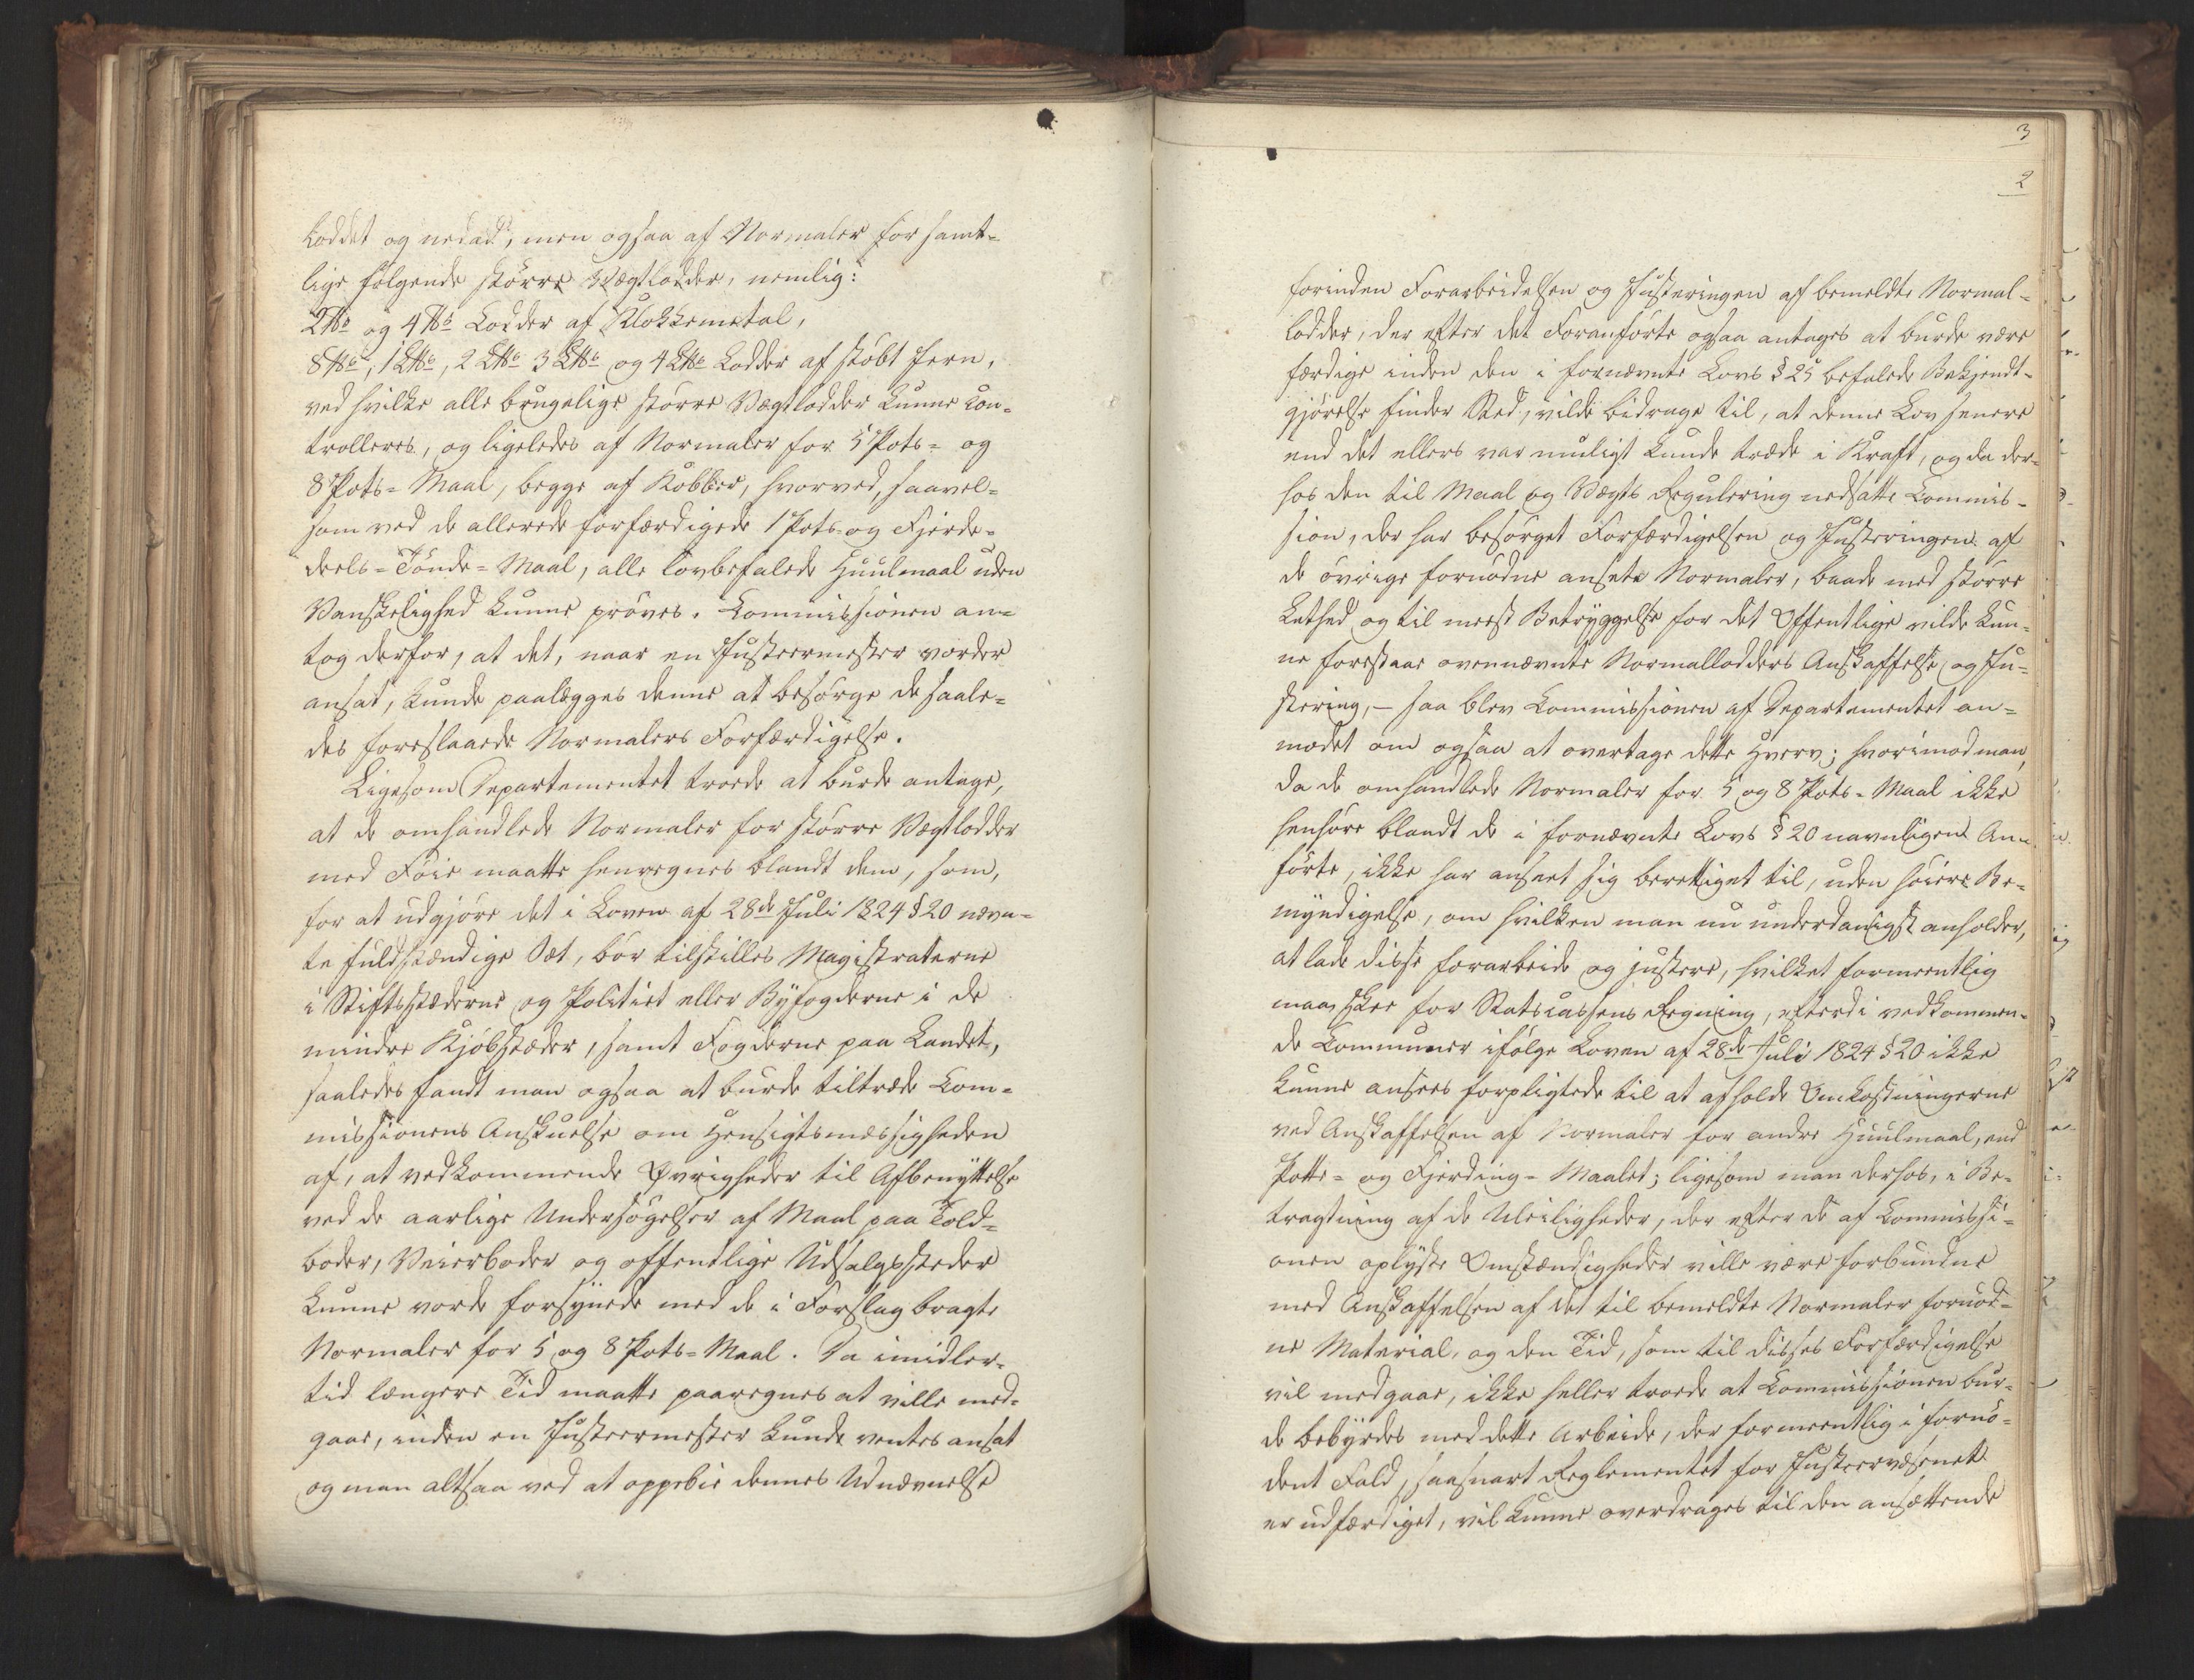 Loddet og nedad, men ogsaa af Normaler for samt-
lige følgende større Vægtlodder, nemlig:
2℔ og 4℔ Lodder af Klokkemetal,
8℔, 1L℔, 2L℔ 3L℔ og 4L℔ Lodder af støbt Jern,
ved hvilke alle brugelige større Vægtlodder kunne con-
trolleres, og ligeledes af Normaler for 5 Pots- og
8 Pots-Maal, begge af Kobber, hvorved, saavel-
som ved de allerede forfærdigede 1 Pots- og Fjerde-
deels-Tønde-Maal, alle lovbefalede Huulmaal uden
Vanskelighed kunne prøves. Commissionen an-
tog derfor, at det, naar en Justeermester vorder
ansat, kunde paalægges denne at besørge de saale-
des foreslaaede Normalers Forfærdigelse.
Ligesom Departementet troede at burde antage,
at de omhandlede Normaler for større Vægtlodder
med Føie maatte henregnes blandt dem, som,
for at udgjøre det i Loven af 28de Juli 1824 § 20 nævn-
te fuldstændige Sæt, bør tilstilles Magistraterne
i Stiftsstæderne og Politiet eller Byfogderne i de
mindre Kjøbstæder, samt Fogderne paa Landet,
saaledes fandt man ogsaa at burde tiltræde Com-
missionens Anskuelse om Hensigtsmæssigheden
af, at vedkommende Øvrigheder til Afbenyttelse
ved de aarlige Undersøgelser af Maal paa Told-
boder, Veierboder og offentlige Udsalgssteder
kunne vorde forsynede med de i Forslag bragte
Normaler for 5 og 8 Pots-Maal. Da imidler-
tid længere Tid maatte paaregnes at ville med-
gaae, inden en Justeermester kunde ventes ansat
og man altsaa ved at oppebie dennes Udnævnelse
3
2
forinden Forarbeidelsen og Justeringen af bemeldte Normal-
lodder, der efter det Foranførte ogsaa antages at burde være
færdige inden den i fornævnte Lovs § 25 befalede Bekjendt-
gjørelse finder Sted, vilde bidrage til, at denne Lov senere
end det ellers var muligt kunde træde i Kraft, og da der-
hos den til Maal og Vægts Regulering nedsatte Commis-
sion, der har besørget Forfærdigelsen og Justeringen af
de øvrige fornødne ansete Normaler, baade med større
Lethed og til meest Betryggelse for det Offentlige vilde kun-
ne forestaae ovennævnte Normallodders Anskaffelse og Ju-
stering, – saa blev Commissionen af Departementet an-
modet om ogsaa at overtage dette Hverv; hvorimod man,
da de omhandlede Normaler for 5 og 8 Pots-Maal ikke
henhøre blandt de i fornævnte Lovs § 20 navnligen An-
førte, ikke har anseet sig berettiget til, uden høiere Be-
myndigelse, om hvilken man nu underdanigst anholder,
at lade disse forarbeide og justere, hvilket formeentlig
maa skee for Statscassens Regning, efterdi vedkommen-
de Communer ifølge Loven af 28de Juli 1824 § 20 ikke
kunne ansees forpligtede til at afholde Omkostningerne
ved Anskaffelsen af Normaler for andre Huulmaal, end
Potte- og Fjerding-Maalet; ligesom man derhos, i Be-
tragtning af de Uleiligheder, der efter de af Commissi-
onen oplyste Omstændigheder ville være forbundne
med Anskaffelsen af det til bemeldte Normaler fornød-
ne Material, og den Tid, som til disses Forfærdigelse
vil medgaae, ikke heller troede at Commissionen bur-
de bebyrdes med dette Arbeide, der formeentlig i fornø-
dent Fald, saasnart Reglementet for Justeervæsenet
er udfærdiget, vil kunne overdrages til den ansættende